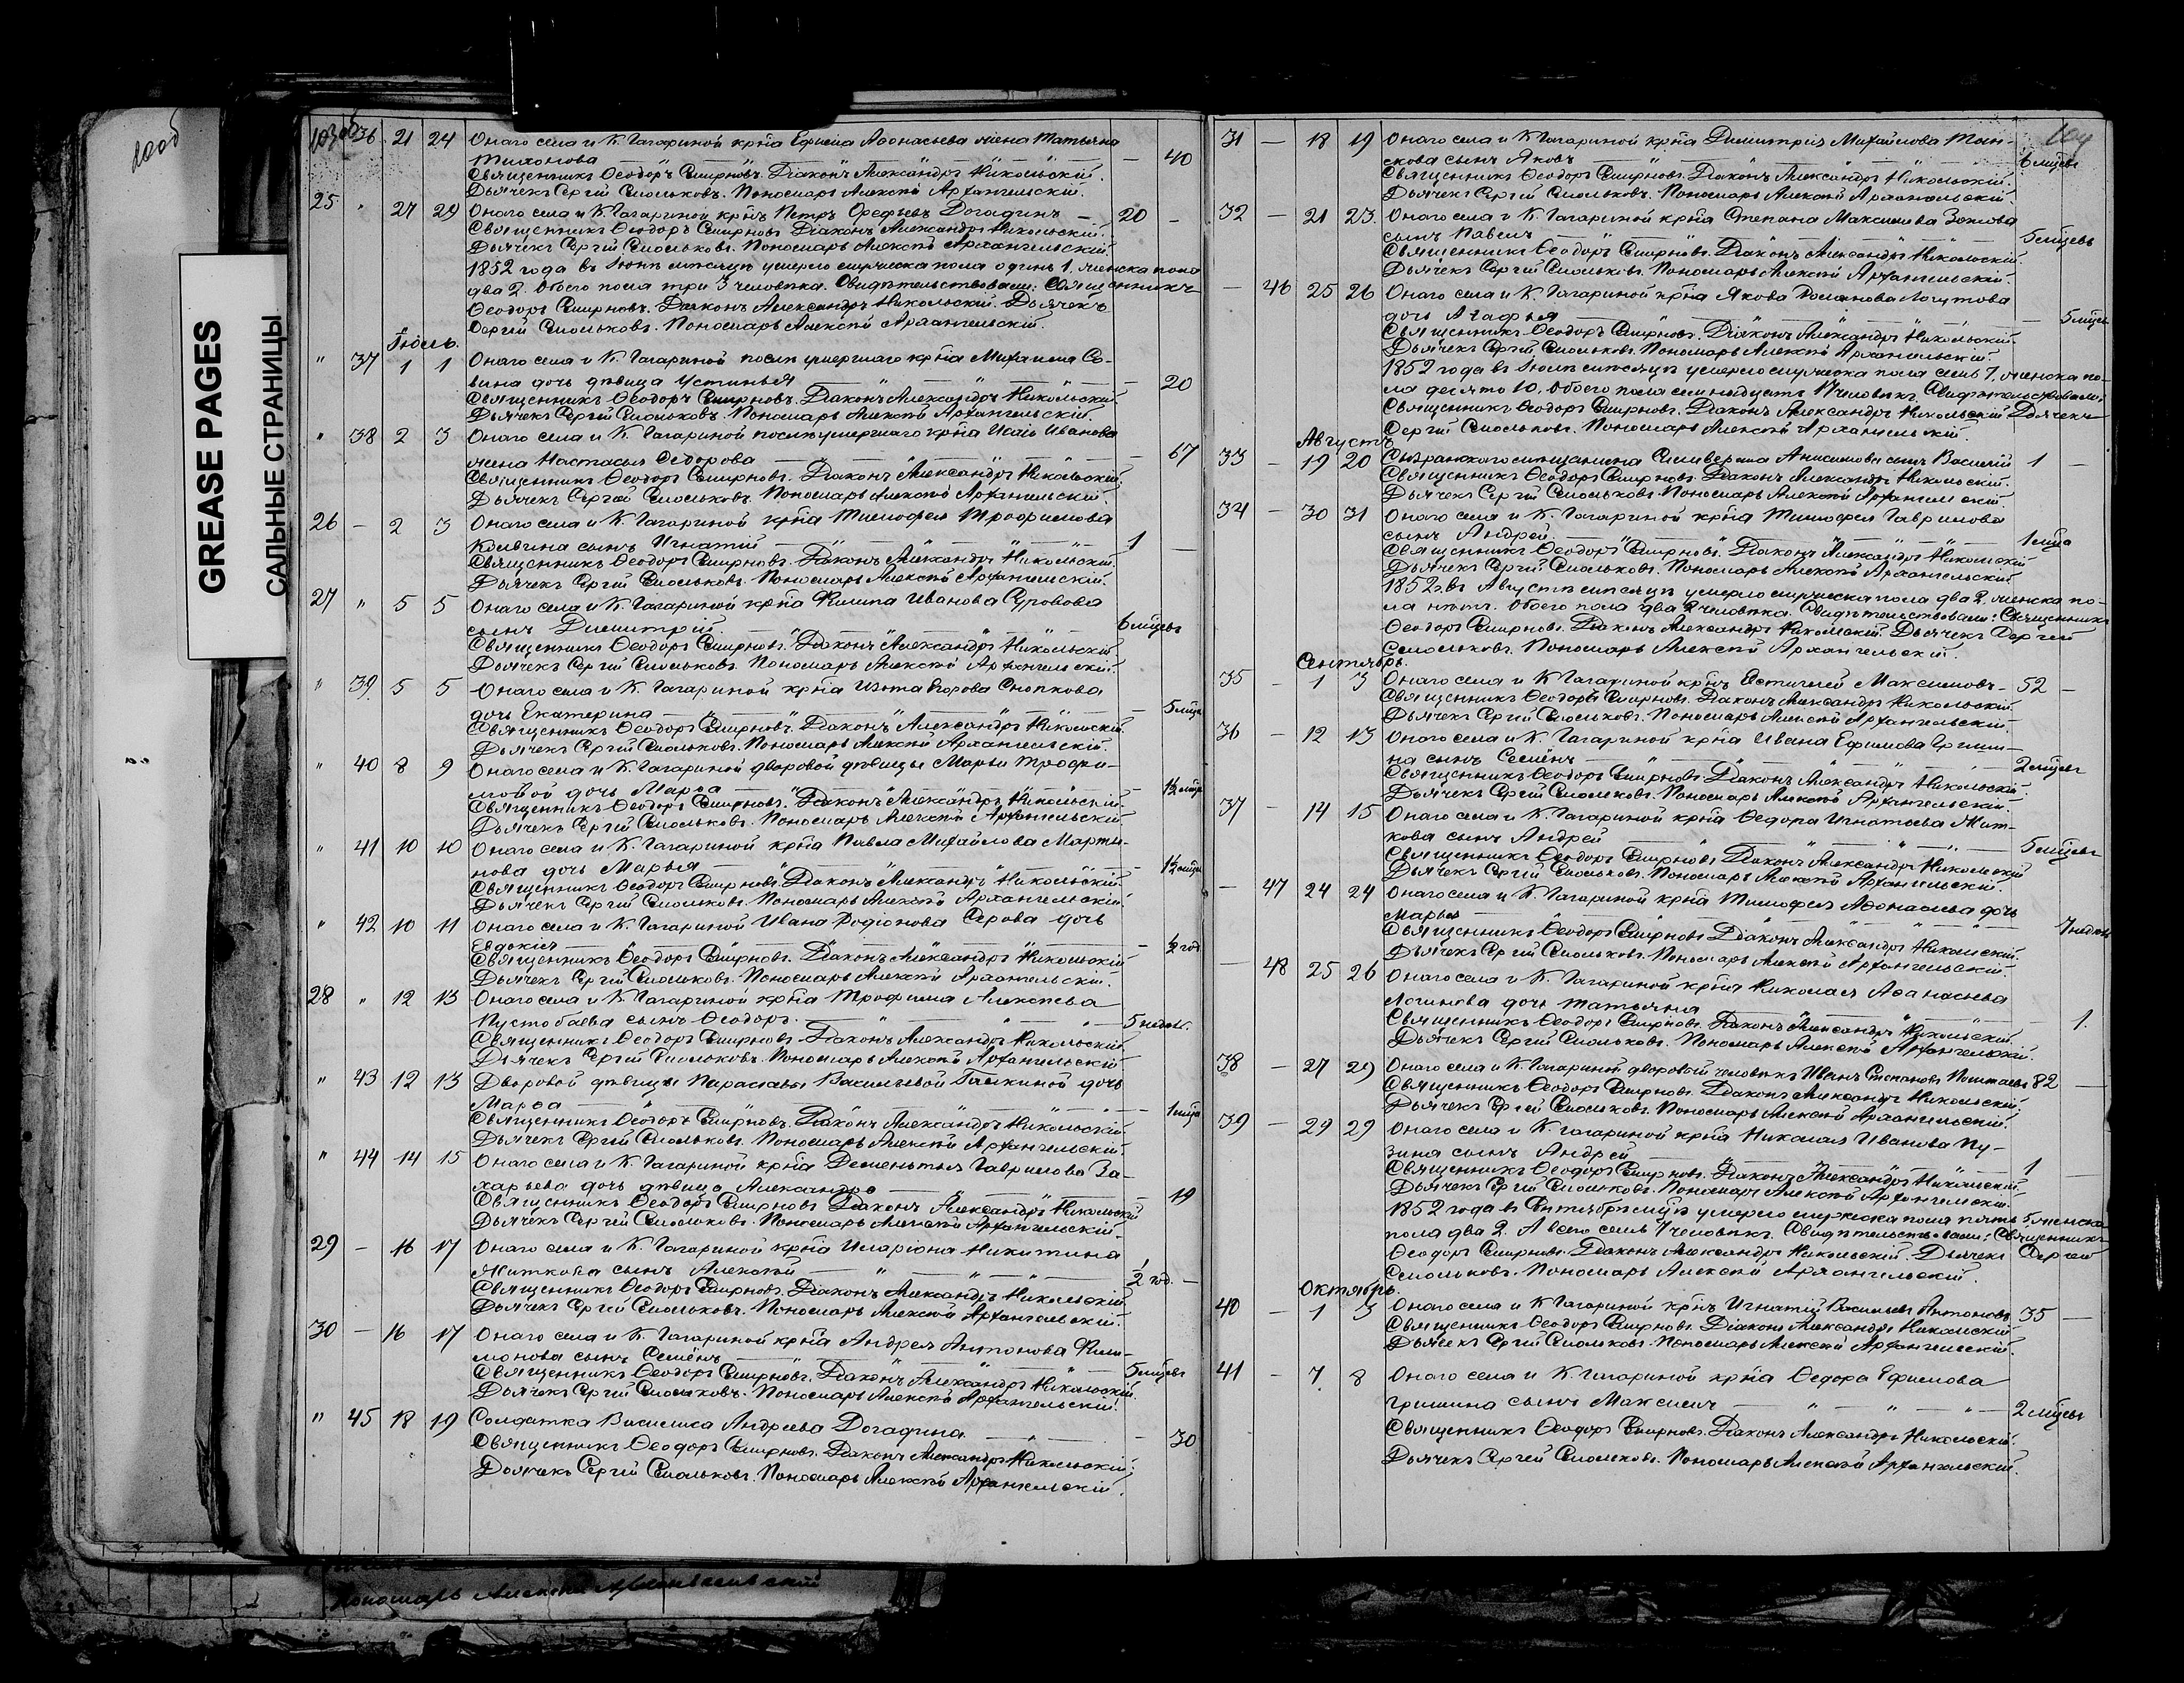 100об
GREASE PAGES
САЛЬНЫЕ СТРАНИЦЫ
103об 36 21 24 Онаго села и К. Гагариной крн҃а Ефима Аѳонасьева жена Татьяна
Тихонова — 40
Священникъ Ѳеодоръ Смирновъ. Діаконъ Александръ Никольскій.
Дьячекъ Сергій Смольковъ. Пономарь Алексѣй Архангельскій.
25 " 27 29 Онаго села и К. Гагариной крн҃ъ Петръ Орефьевъ Догадинъ — 20 —
Священникъ Ѳеодоръ Смирновъ. Діаконъ Александръ Никольскій.
Дьячекъ Сергій Смольковъ. Пономарь Алексѣй Архангельскій.
1852 года въ Іюнѣ мѣсяцѣ умерло мужеска пола одинъ 1. женска пола
два 2. Обоего пола три 3 человѣка. Свидѣтельствовали: Священникъ
Ѳеодоръ Смирновъ. Діаконъ Александръ Никольскій. Дьячекъ
Сергій Смольковъ. Пономарь Алексѣй Архангельскій.
Іюль.
" 37 1 1 Онаго села и К. Гагариной послѣ умершаго крн҃а Михаила Са-
вина дочь дѣвица Устинья — 20
Священникъ Ѳеодоръ Смирновъ. Діаконъ Александръ Никольскій.
Дьячекъ Сергій Смольковъ. Пономарь Алексѣй Архангельскій.
" 38 2 3 Онаго села и К. Гагариной послѣ умершаго крн҃а Исаія Иванова
жена Настасья Ѳедорова — 67
Священникъ Ѳеодоръ Смирновъ. Діаконъ Александръ Никольскій.
Дьячекъ Сергій Смольковъ. Пономарь Алексѣй Архангельскій.
26 — 2 3 Онаго села и К. Гагариной крн҃а Тимофея Трофимова
сынъ Игнатій — 1 —
Священникъ Ѳеодоръ Смирновъ. Діаконъ Александръ Никольскій.
Дьячекъ Сергій Смольковъ. Пономарь Алексѣй Архангельскій.
27 " 5 5 Онаго села и К. Гагариной крн҃а Филипа Иванова Суровова
сынъ Димитрій. — 6 мцевъ
Священникъ Ѳеодоръ Смирновъ. Діаконъ Александръ Никольскій.
Дьячекъ Сергій Смольковъ. Пономарь Алексѣй Архангельскій.
" 39 5 5 Онаго села и К. Гагариной крн҃а Изота Егорова Снопкова
дочь Екатерина — 5 мцев
Священникъ Ѳеодоръ Смирновъ. Діаконъ Александръ Никольскій.
Дьячекъ Сергій Смольковъ. Пономарь Алексѣй Архангельскій.
" 40 8 9 Онаго села и К. Гагариной дворовой дѣвицы Марьи Трофи-
мовой дочь Марѳа — 1½ мца
Священникъ Ѳеодоръ Смирновъ. Діаконъ Александръ Никольскій.
Дьячекъ Сергій Смольковъ. Пономарь Алексѣй Архангельскій.
" 41 10 10 Онаго села и К. Гагариной крн҃а Павла Михайлова Марты-
нова дочь Марья — 1½ мца
Священникъ Ѳеодоръ Смирновъ. Діаконъ Александръ Никольскій.
Дьячекъ Сергій Смольковъ. Пономарь Алексѣй Архангельскій.
" 42 10 11 Онаго села и К. Гагариной Ивана Родіонова Серова дочь
Евдокія — ½ год
Священникъ Ѳеодоръ Смирновъ. Діаконъ Александръ Никольскій.
Дьячекъ Сергій Смольковъ. Пономарь Алексѣй Архангельскій.
28 " 12 13 Онаго села и К. Гагариной крн҃а Трофима Алексѣева
Пустобаева сынъ Ѳеодоръ. — 5 недѣль.
Священникъ Ѳеодоръ Смирновъ. Діаконъ Александръ Никольскій.
Дьячекъ Сергій Смольковъ. Пономарь Алексѣй Архангельскій.
" 43 12 13 Дворовой дѣвицы Парасковьи Васильевой Галкиной дочь
Марѳа — 1 мца
Священникъ Ѳеодоръ Смирновъ. Діаконъ Александръ Никольскій.
Дьячекъ Сергій Смольковъ. Пономарь Алексѣй Архангельскій.
" 44 14 15 Онаго села и К. Гагариной крн҃а Дементья Гаврилова За-
харьева дочь дѣвица Александра — 19
Священникъ Ѳеодоръ Смирновъ. Діаконъ Александръ Никольскій.
Дьячекъ Сергій Смольковъ. Пономарь Алексѣй Архангельскій.
29 — 16 17 Онаго села и К. Гагариной крн҃а Иларіона Никитина
Житкова сынъ Алексѣй — ½ год. —
Священникъ Ѳеодоръ Смирновъ. Діаконъ Александръ Никольскій.
Дьячекъ Сергій Смольковъ. Пономарь Алексѣй Архангельскій.
30 — 16 17 Онаго села и К. Гагариной крн҃а Андрея Антонова Фили-
монова сынъ Семёнъ — 5 мцевъ
Священникъ Ѳеодоръ Смирновъ. Діаконъ Александръ Никольскій.
Дьячекъ Сергій Смольковъ. Пономарь Алексѣй Архангельскій.
" 45 18 19 Солдатка Василиса Андреева Догадина — 30
Священникъ Ѳеодоръ Смирновъ. Діаконъ Александръ Никольскій.
Дьячекъ Сергій Смольковъ. Пономарь Алексѣй Архангельскій.
Пономарь Алексѣй Архангельскій
104
31 — 18 19 Онаго села и К. Гагариной крн҃а Димитрія Михайлова
сынъ Яковъ — 6 мцевъ
Священникъ Ѳеодоръ Смирновъ. Діаконъ Александръ Никольскій.
Дьячекъ Сергій Смольковъ. Пономарь Алексѣй Архангельскій.
32 — 21 23 Онаго села и К. Гагариной крн҃а Степана Максимова Зотова
сынъ Павелъ — 5 мцевъ
Священникъ Ѳеодоръ Смирновъ. Діаконъ Александръ Никольскій.
Дьячекъ Сергій Смольковъ. Пономарь Алексѣй Архангельскій.
— 46 25 26 Онаго села и К. Гагариной крн҃а Якова Романова Логутова
дочь Агафья — 5 мцев
Священникъ Ѳеодоръ Смирновъ. Діаконъ Александръ Никольскій.
Дьячекъ Сергій Смольковъ. Пономарь Алексѣй Архангельскій.
1852 года въ Іюлѣ мѣсяцѣ умерло мужеска пола семь 7, женска по-
ла десято 10, обоего пола семнадцать 17 человѣкъ. Свидѣтельствовали:
Священникъ Ѳеодоръ Смирновъ. Діаконъ Александръ Никольскій Дьячекъ
Сергій Смольковъ. Пономарь Алексѣй Архангельскій.
Августъ
33 — 19 20 Сызранскаго мѣщанина Селиверста Анисимова сынъ Василій 1 —
Священникъ Ѳеодоръ Смирновъ. Діаконъ Александръ Никольскій.
Дьячекъ Сергій Смольковъ. Пономарь Алексѣй Архангельскій.
34 — 30 31 Онаго села и К. Гагариной крн҃а Тимофея Гаврилова
сынъ Андрей — 1 мца
Священникъ Ѳеодоръ Смирновъ. Діаконъ Александръ Никольскій.
Дьячекъ Сергій Смольковъ. Пономарь Алексѣй Архангельскій.
1852 г. въ Августѣ мѣсяцѣ умерло мужеска пола два 2, женска по-
ла нѣтъ. Обоего пола два 2 человѣка. Свидѣтельствовали: Священникъ
Ѳеодоръ Смирновъ. Діаконъ Александръ Никольскій. Дьячекъ Сергій
Смольковъ. Пономарь Алексѣй Архангельскій.
Сентябрь.
35 — 1 3 Онаго села и К. Гагариной крн҃ъ Евстигней Максимовъ — 52 —
Священникъ Ѳеодоръ Смирновъ. Діаконъ Александръ Никольскій.
Дьячекъ Сергій Смольковъ. Пономарь Алексѣй Архангельскій.
36 — 12 13 Онаго села и К. Гагариной крн҃а Ивана Ефимова Гриши-
на сынъ Семёнъ — 2 мцевъ
Священникъ Ѳеодоръ Смирновъ. Діаконъ Александръ Никольскій.
Дьячекъ Сергій Смольковъ. Пономарь Алексѣй Архангельскій.
37 — 14 15 Онаго села и К. Гагариной крн҃а Ѳедора Игнатьева Жит-
кова сынъ Андрей — 5 мцевъ
Священникъ Ѳеодоръ Смирновъ. Діаконъ Александръ Никольскій.
Дьячекъ Сергій Смольковъ. Пономарь Алексѣй Архангельскій.
— 47 24 24 Онаго села и К. Гагариной крн҃а Тимофея Аѳонасьева дочь
Марья — 7 недѣль
Священникъ Ѳеодоръ Смирновъ. Діаконъ Александръ Никольскій.
Дьячекъ Сергій Смольковъ. Пономарь Алексѣй Архангельскій.
— 48 25 26 Онаго села и К. Гагариной крн҃а Николая Аѳанасьева
Логинова дочь Татьяна — 1.
Священникъ Ѳеодоръ Смирновъ. Діаконъ Александръ Никольскій.
Дьячекъ Сергій Смольковъ. Пономарь Алексѣй Архангельскій.
38 — 27 29 Онаго села и К. Гагариной дворовой человѣкъ Иванъ Степановъ 82 —
Священникъ Ѳеодоръ Смирновъ. Діаконъ Александръ Никольскій.
Дьячекъ Сергій Смольковъ. Пономарь Алексѣй Архангельскій.
39 — 29 29 Онаго села и К. Гагариной крн҃а Николая Иванова Пу-
зина сынъ Андрей — 1
Священникъ Ѳеодоръ Смирновъ. Діаконъ Александръ Никольскій.
Дьячекъ Сергій Смольковъ. Пономарь Алексѣй Архангельскій.
1852 года въ Сентябрѣ мцѣ умерло мужеска пола пять 5 женска
пола два 2. А всего семь 7 человѣкъ. Свидѣтельствовали: Священникъ
Ѳеодоръ Смирновъ. Діаконъ Александръ Никольскій. Дьячекъ Сергій
Смольковъ. Пономарь Алексѣй Архангельскій.
Октябрь.
40 — 1 3 Онаго села и К. Гагариной крн҃ъ Игнатій Васильевъ Антоновъ 35 —
Священникъ Ѳеодоръ Смирновъ. Діаконъ Александръ Никольскій.
Дьячекъ Сергій Смольковъ. Пономарь Алексѣй Архангельскій.
41 — 7 8 Онаго села и К. Гагариной крн҃а Ѳедора Ефимова
Гришина сынъ Максимъ — 2 мцевъ
Священникъ Ѳеодоръ Смирновъ. Діаконъ Александръ Никольскій.
Дьячекъ Сергій Смольковъ. Пономарь Алексѣй Архангельскій.